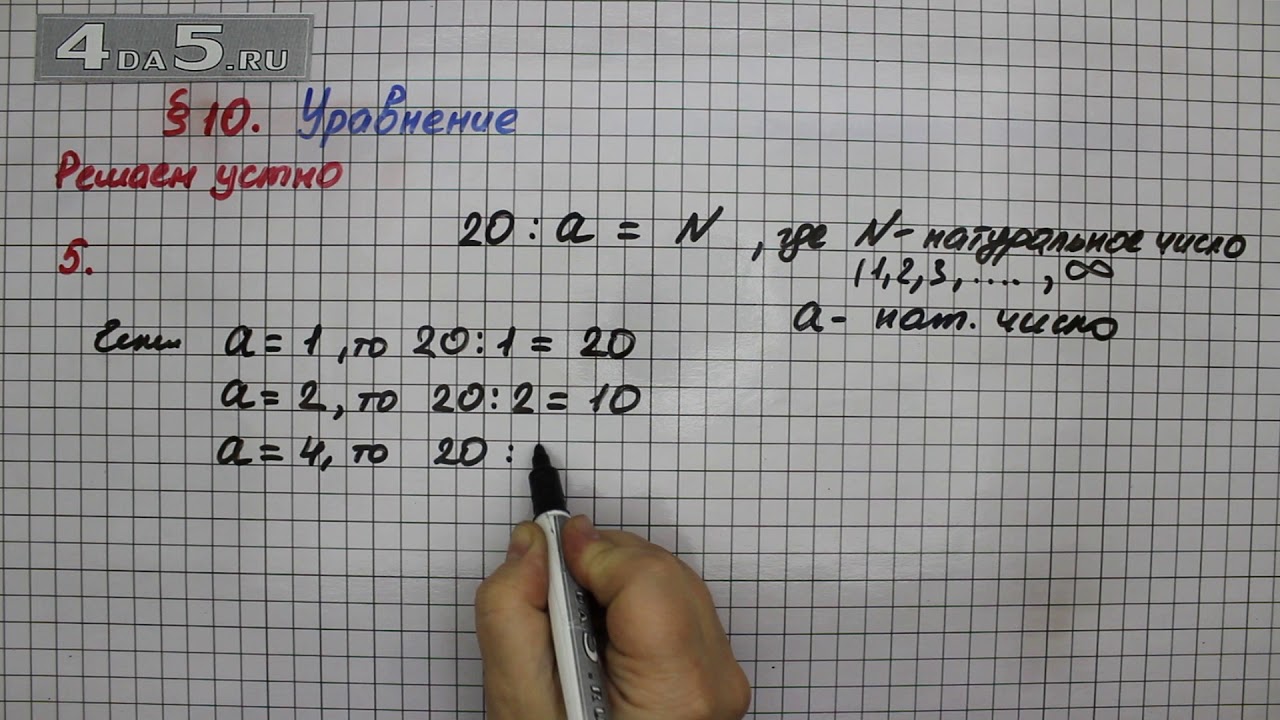 4DA5.RU
§ 10. Уравнение
Решаем устно
5.
20 : a = N , где N - натуральное число
(1, 2, 3, .... , ∞
a - нат. число
Если a = 1, то 20 : 1 = 20
a = 2, то 20 : 2 = 10
a = 4, то 20 :